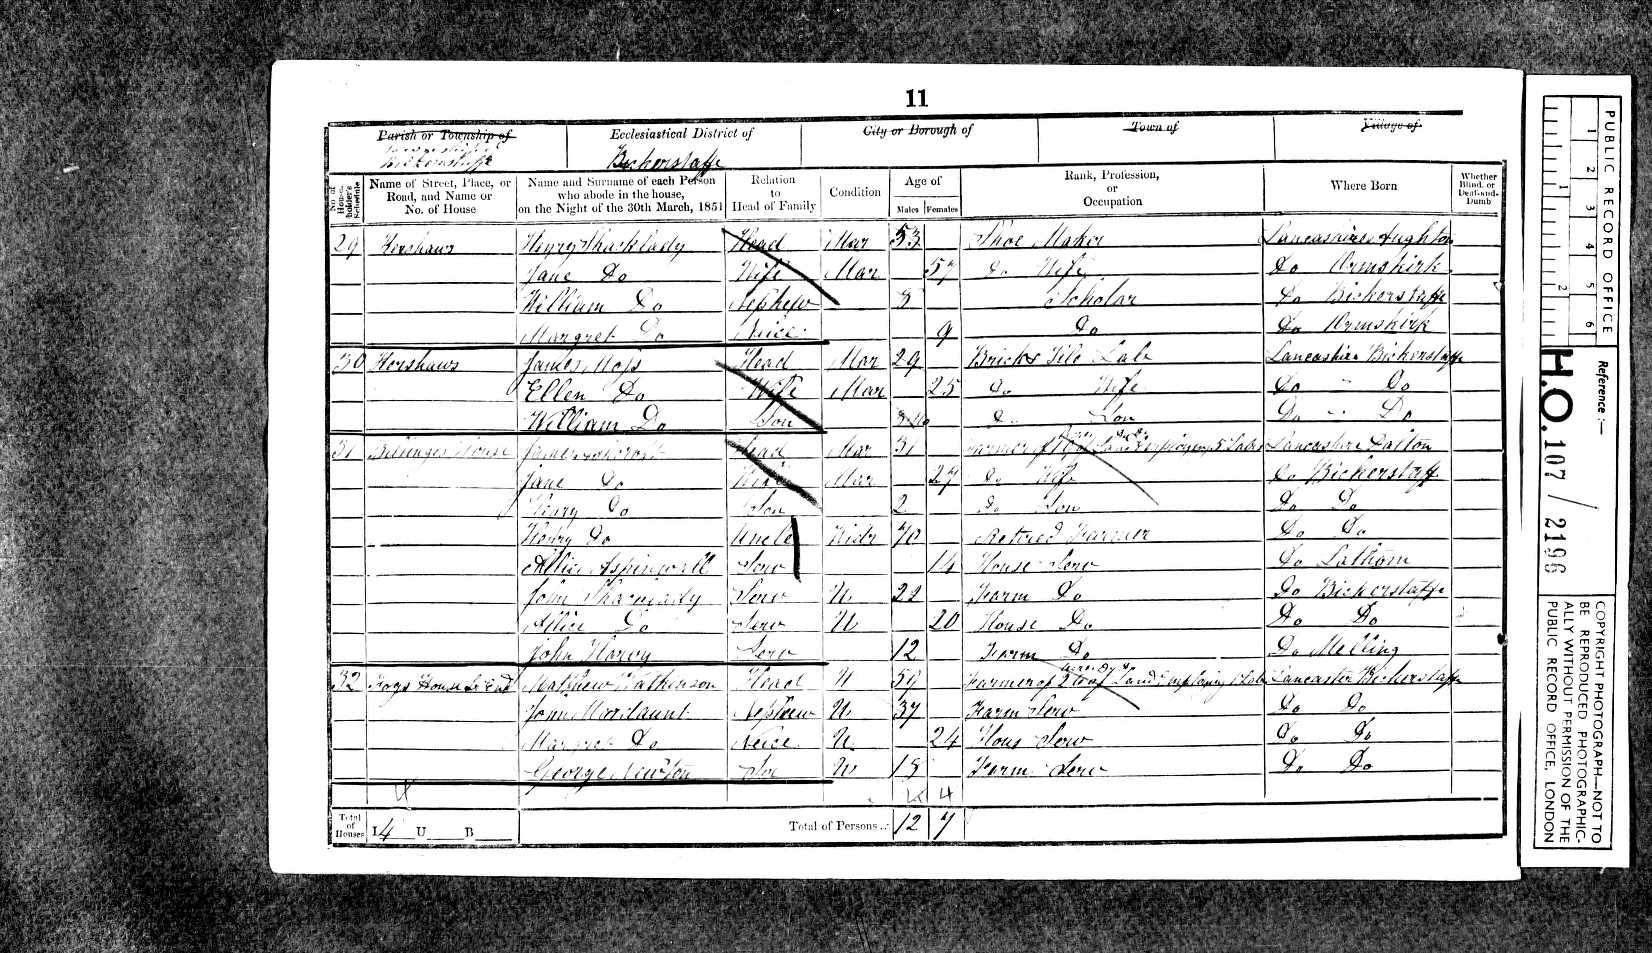 11
Parish or Township of Ecclesiastical District of City or Borough of Town of Village of
Bickerstaffe
No. of House-holder's Schedule Name of Street, Place, or Road, and Name or No. of House Name and Surname of each Person who abode in the house, on the Night of the 30th March, 1851 Relation to Head of Family Condition Age of Males Females Rank, Profession, or Occupation Where Born Whether Blind, or Deaf-and-Dumb
29 Hershaws Henry Shacklady Head Mar 53 Shoe Maker Lancashire Aughton
Jane Do Wife Mar 57 Do Wife Do Ormskirk
William Do Nephew 8 Scholar Do Bickerstaffe
Margret Do Niece 9 Do Do Ormskirk
30 Hershaws James Moss Head Mar 29 Brick & Tile Lab Lancashire Bickerstaffe
Ellen Do Wife Mar 25 Do Wife Do " Do
William Do Son Do Son Do " Do
31 House James Head Mar 31 Farmer of Land employing 5 Labs Lancashire Dalton
Jane Do Wife Mar 27 Do Wife Do Bickerstaff
Henry Do Son 2 Do Son Do Do
Henry Do Uncle Widr 70 Retired Farmer Do Do
Allice Aspinwall Serv 14 House Serv Do Lathom
John Shacklady Serv U 22 Farm Do Do Bickerstaffe
Allice Do Serv U 20 House Do Do Do
John Harvy Serv 12 Farm Do Do Melling
32 House Matthew Watkinson Head U 59 Farmer of Land Employing 1 Lab Lancaster Bickerstaffe
John Mordaunt Nephew U 37 Farm Serv Do Do
Margret Do Neice U 24 Hous Serv Do Do
George Newton Ser U 18 Farm Serv Do Do
4 4
Total of Houses I 4 U B Total of Persons .. 12 7
PUBLIC RECORD OFFICE
1 2 3 4 5 6
1 2
Reference :—
H.O. 107 / 2196
COPYRIGHT PHOTOGRAPH—NOT TO
BE REPRODUCED PHOTOGRAPHIC-
ALLY WITHOUT PERMISSION OF THE
PUBLIC RECORD OFFICE, LONDON